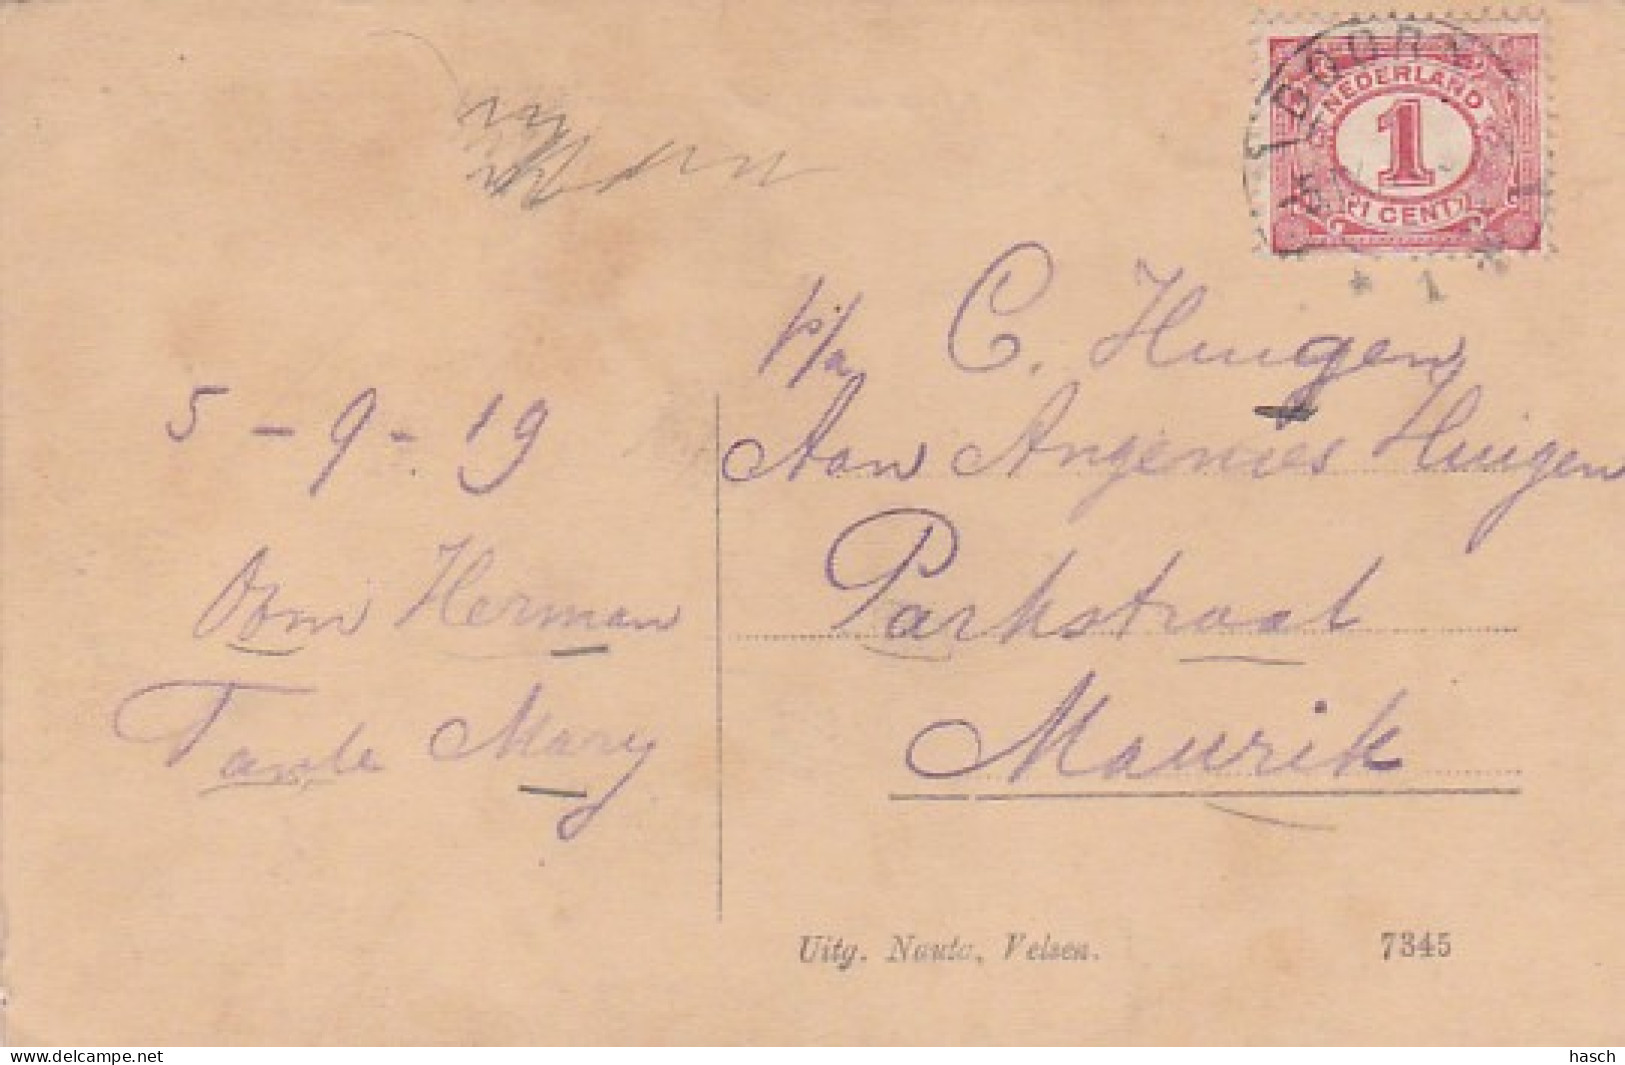 DOORN
NEDERLAND
1
1 CENT
* 1 *
p/a C. Huigen
Aan Angenies Huigen
5-9-19
Parkstraat
Oom Herman
Maurik
Tante Mary
Uitg. Nauta, Velsen. 7345
www.delcampe.net
hasch